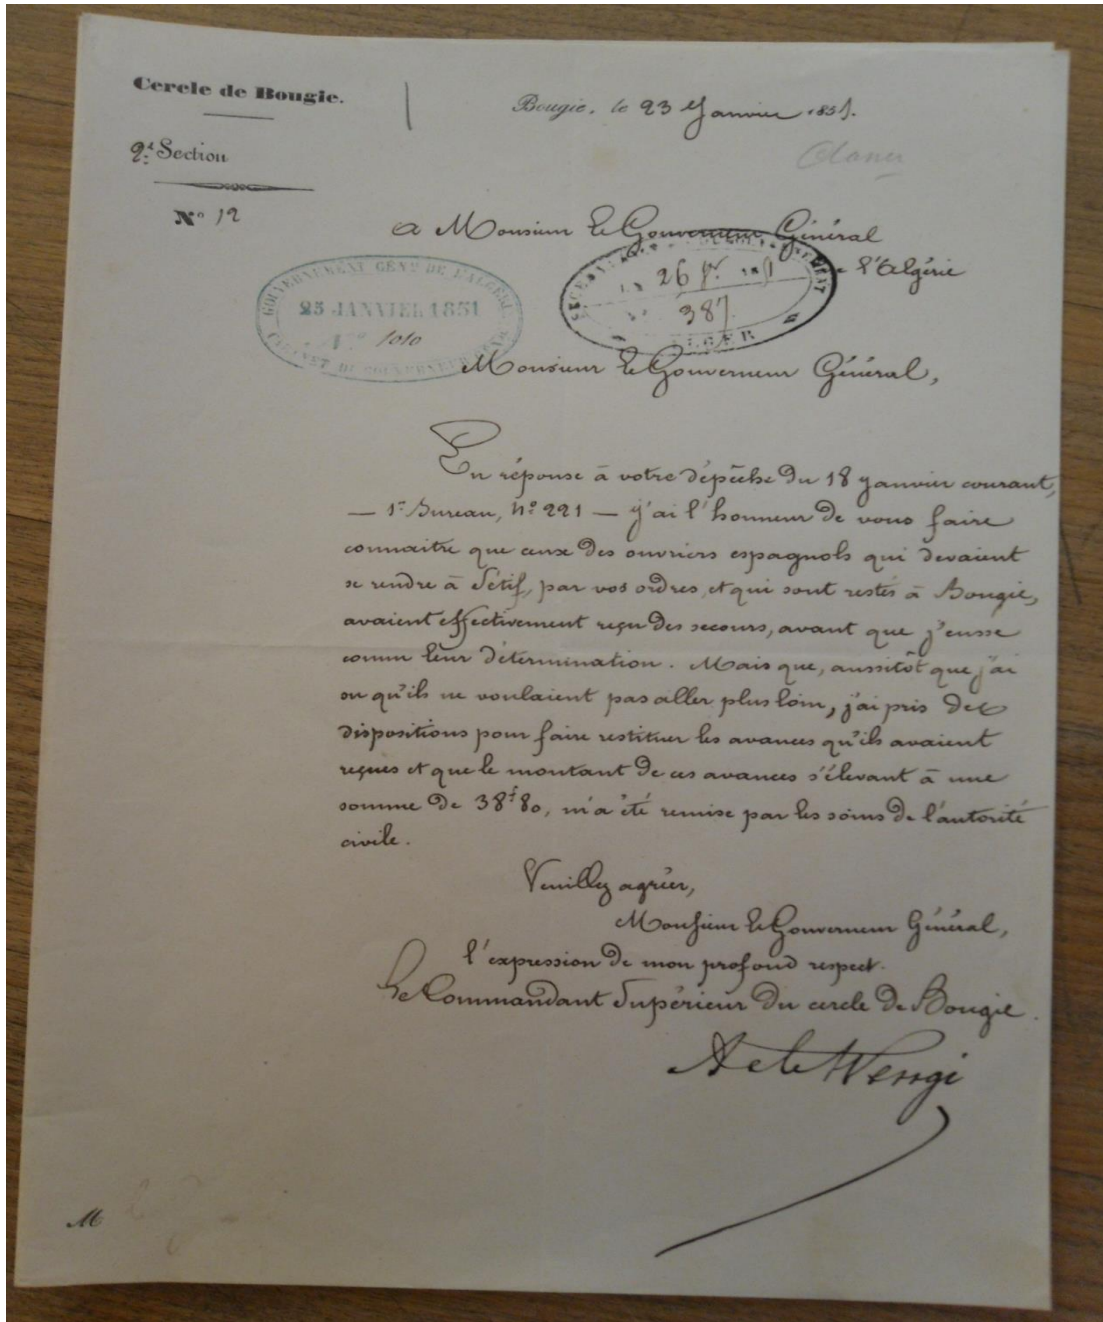 Cercle de Bougie.
Bougie, le 23 Janvier 1851.
2e Section
N° 12
A Monsieur le Gouverneur Général
de l'Algérie
GOUVERNEMENT GÉNal DE L'ALGÉRIE
25 JANVIER 1851
N° 1010
CABINET DU GOUVERNEUR GÉNÉRAL
26 Jer 1851
387
ALGER
Monsieur le Gouverneur Général,
En réponse à votre dépêche du 18 janvier courant,
— 1er Bureau, N° 221 — j'ai l'honneur de vous faire
connaitre que ceux des ouvriers espagnols qui devaient
se rendre à Sétif, par vos ordres, et qui sont restés à Bougie,
avaient effectivement reçu des secours, avant que j'eusse
connu leur détermination. Mais que, aussitôt que j'ai
su qu'ils ne voulaient pas aller plus loin, j'ai pris des
dispositions pour faire restituer les avances qu'ils avaient
reçues et que le montant de ces avances s'élevant à une
somme de 38f80, m'a été remise par les soins de l'autorité
civile.
Veuillez agréer,
Monsieur le Gouverneur Général,
l'expression de mon profond respect.
Le Commandant Supérieur du cercle de Bougie.
M